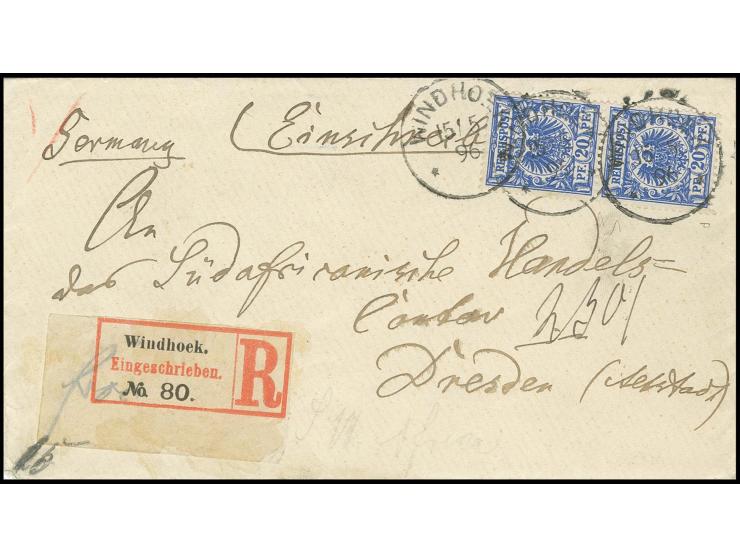 Germany (Einschreiben
WINDHOEK
15/5
96
REICHSPOST 20 PF. 20 PF.
REICHSPOST 20 PF. 20 PF.
An
das Südafricanische Handels=
Contor
Dresden (Altstadt)
Windhoek.
Eingeschrieben.
No. 80.
R